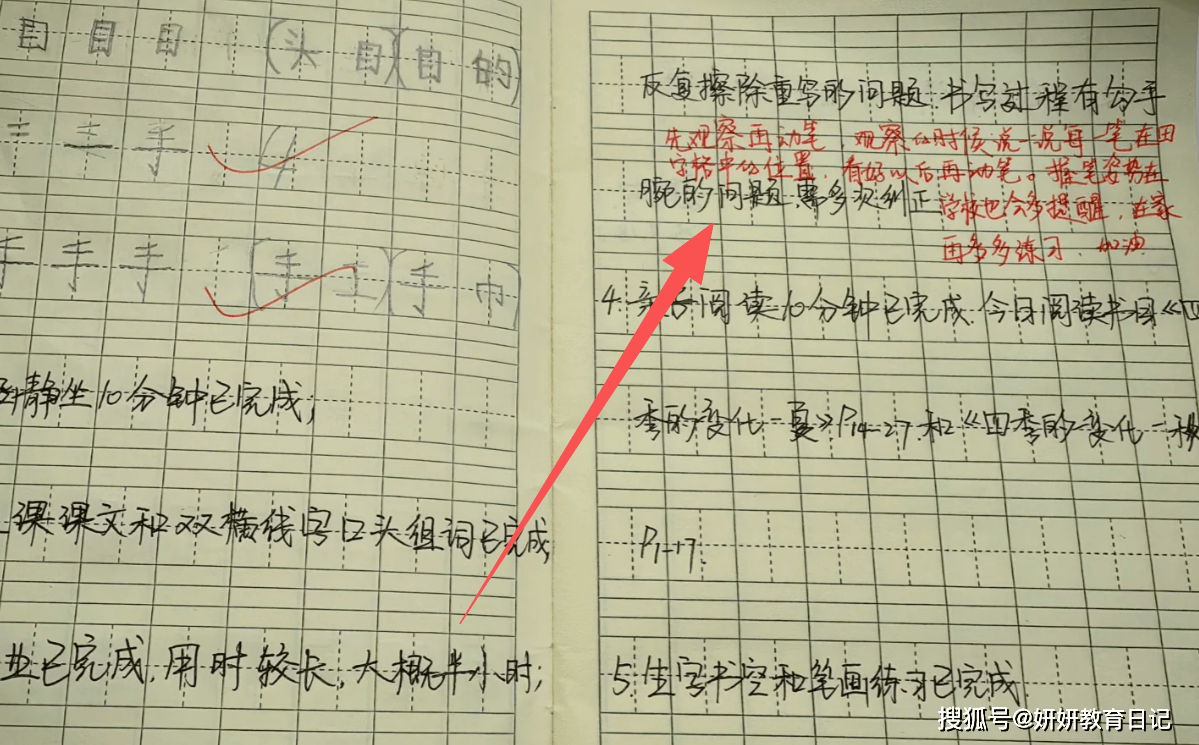 目 目 目 (头 目)(目 的)
手 手 手
手 手 手 (手 工)(手 巾)
静坐10分钟已完成;
课课文和双横线字口头组词已完成,
业已完成,用时较长,大概半小时;
反复擦除重写的问题,书写过程有勾手
先观察再动笔,观察的时候说一说每一笔在田
字格中的位置,看好以后再动笔。握笔姿势在
腕的问题,需多次纠正
学校也会多提醒,在家
再多多练习,加油
4.亲子阅读10分钟已完成,今日阅读书目《四
季的变化-夏》P14-27和《四季的变化-秋
P1-17.
5.生字书空和笔画练习已完成
搜狐号@妍妍教育日记